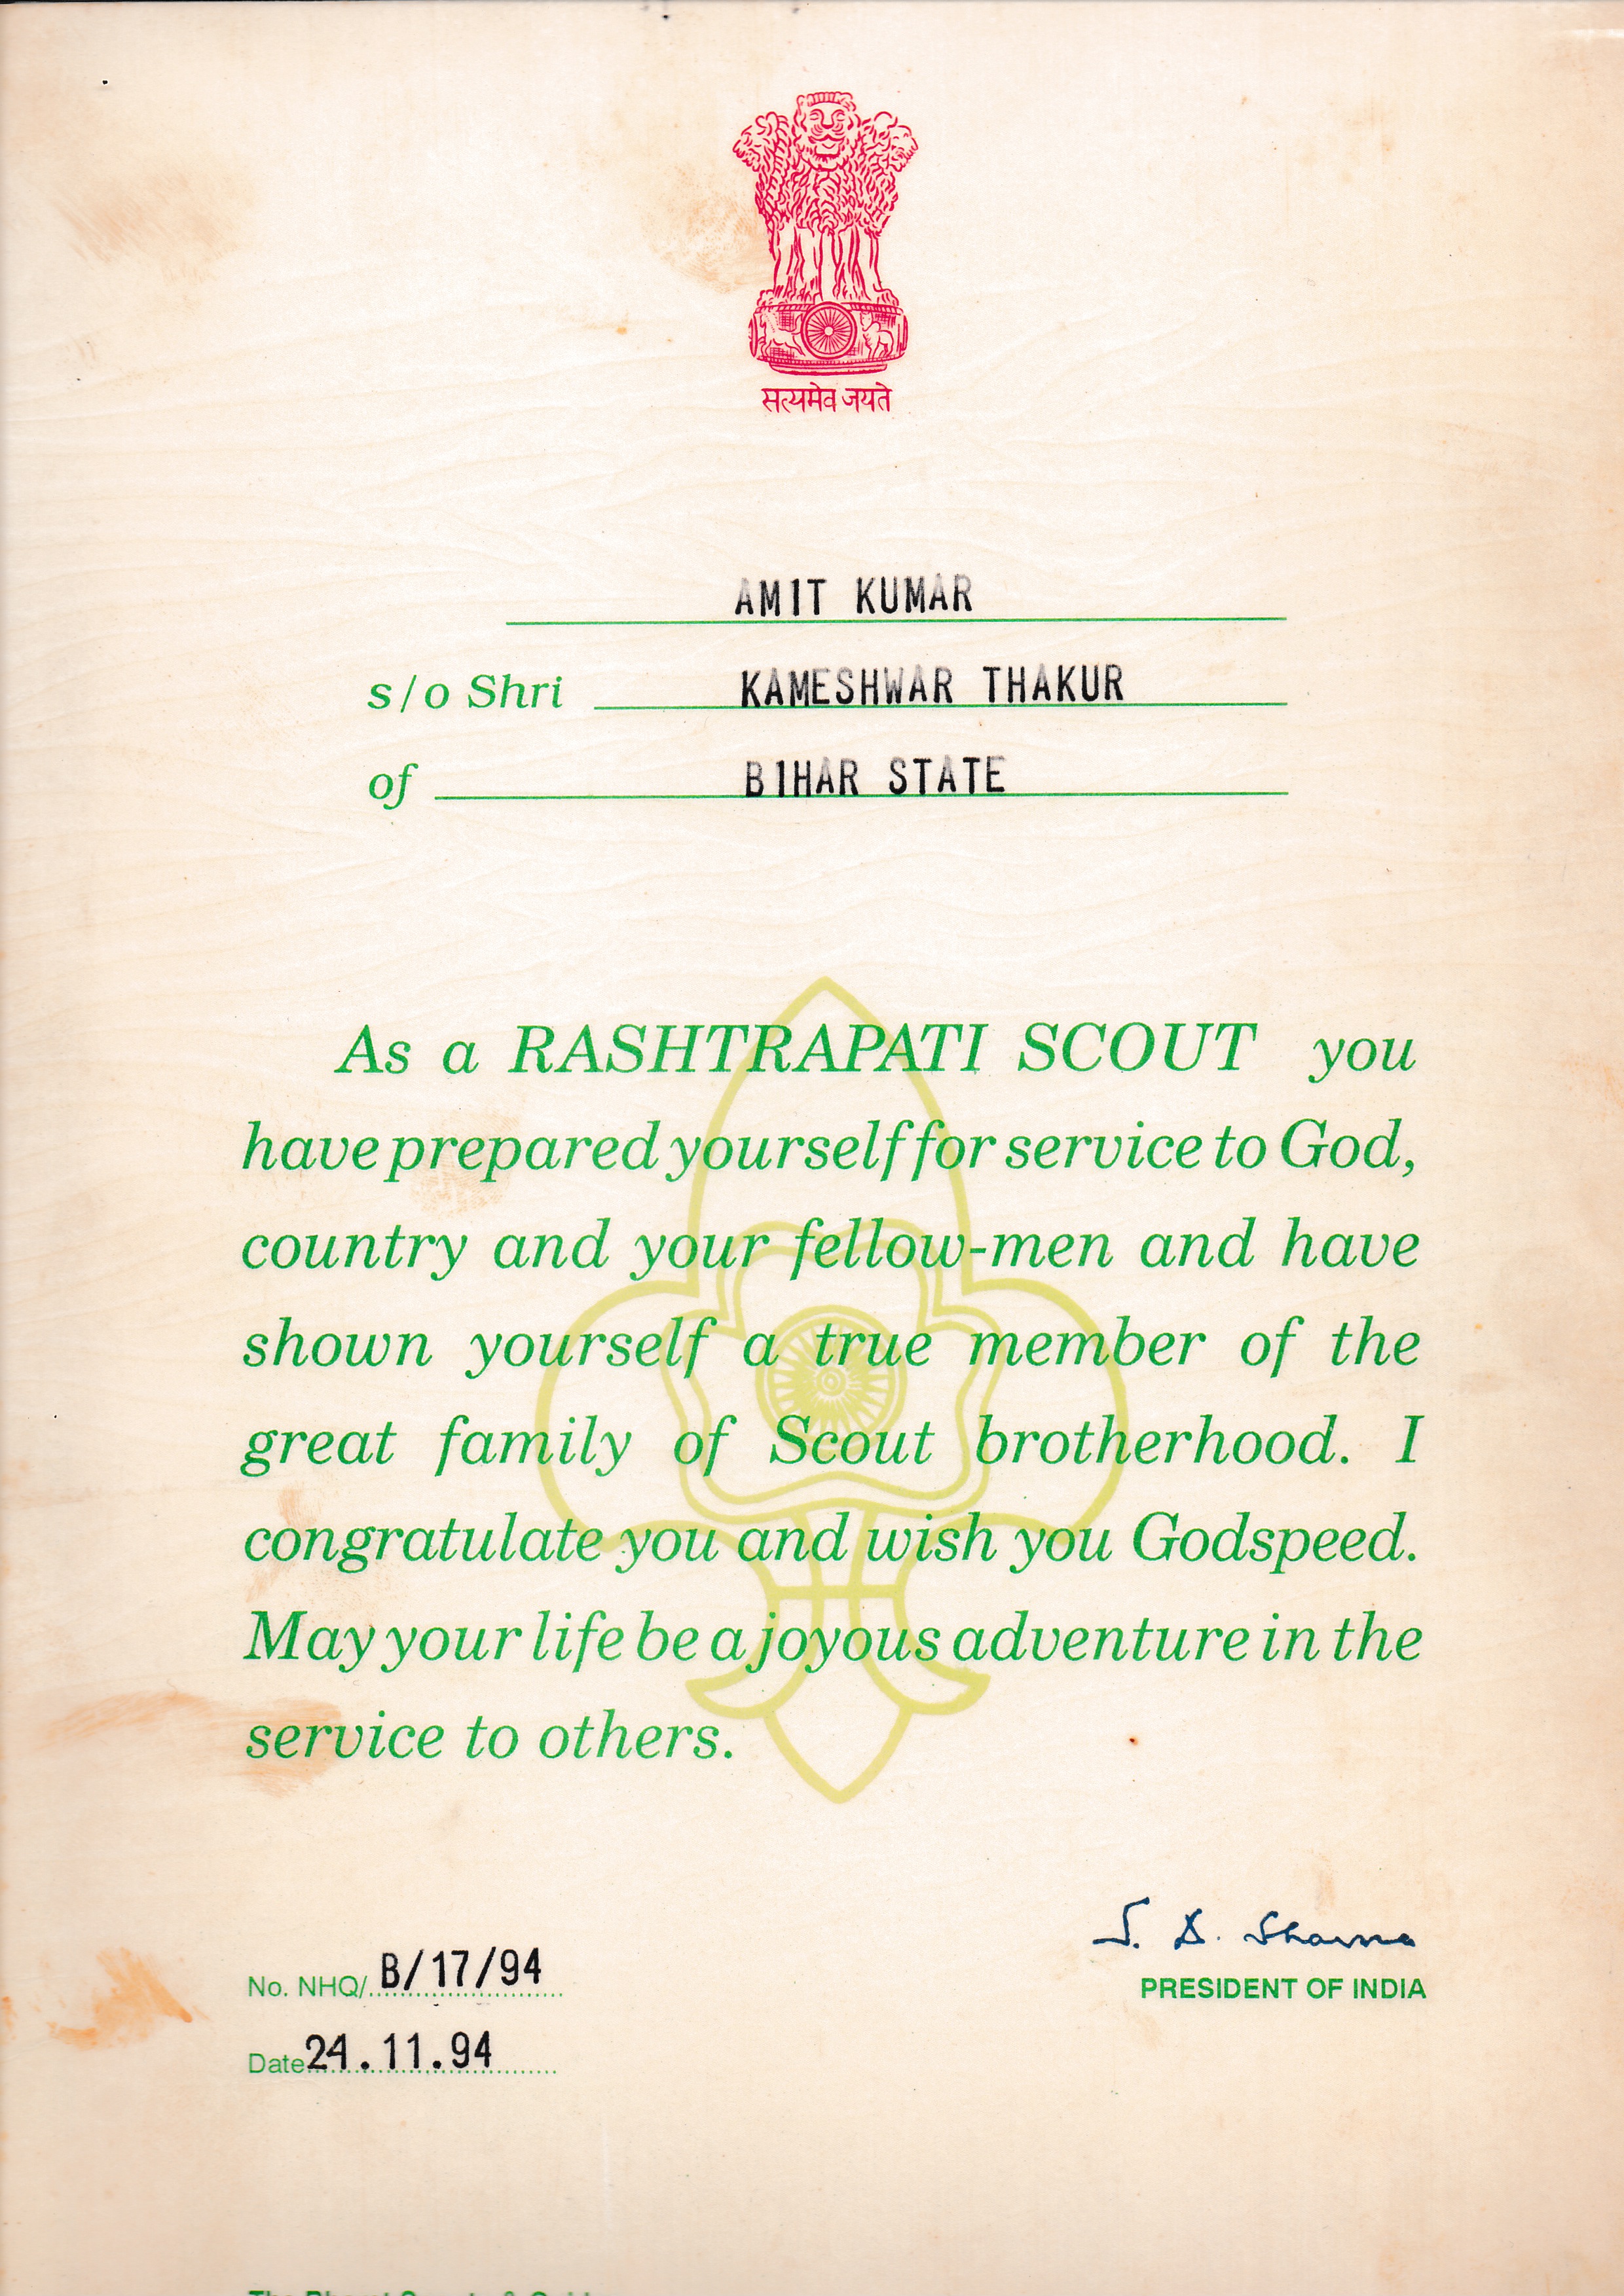 सत्यमेव जयते
AMIT KUMAR
s/o Shri KAMESHWAR THAKUR
of BIHAR STATE
As a RASHTRAPATI SCOUT you
have prepared yourself for service to God,
country and your fellow-men and have
shown yourself a true member of the
great family of Scout brotherhood. I
congratulate you and wish you Godspeed.
May your life be a joyous adventure in the
service to others.
S. D. Sharma
PRESIDENT OF INDIA
No. NHQ/ B/17/94
Date 24.11.94